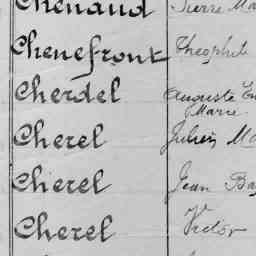 Chenaud Pierre Ma
Chenefront Théophil
Cherdel Auguste Em
Marie
Cherel Julien Ma
Cherel Jean Bap
Cherel Vr
Victor